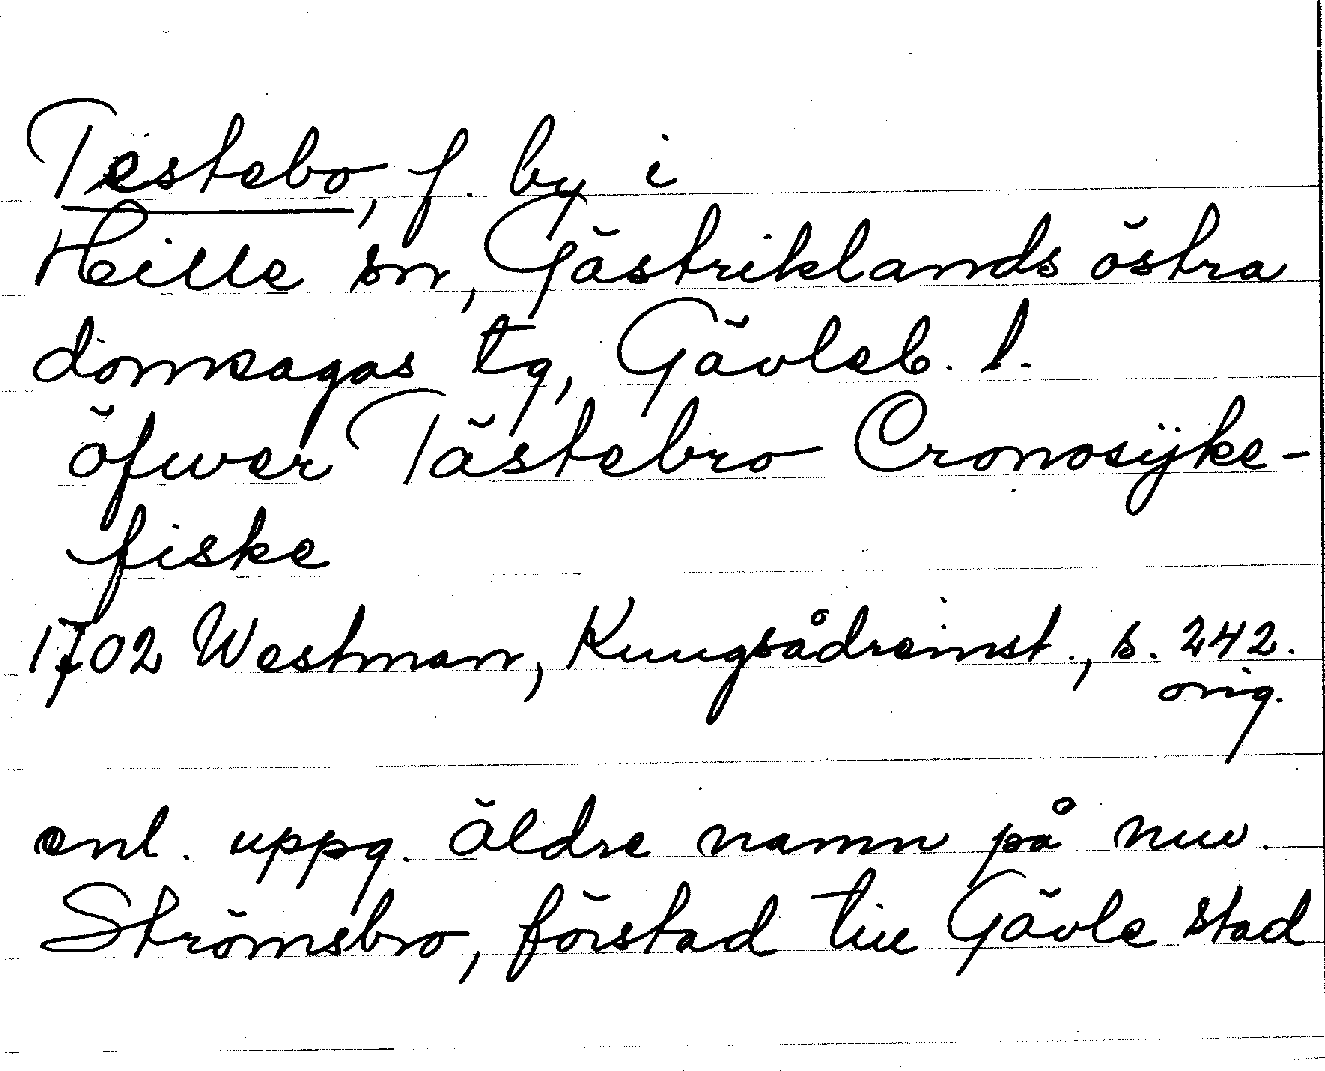 Testebo, f. by i
Hille sn, Gästriklands östra
domsagas tg, Gävleb. l.
öfwer Tästebro Cronosÿke-
fiske
1702 Westman, Kungsådreinst., s. 242.
orig.
enl. uppg. äldre namn på nuv.
Strömsbro, förstad till Gävle stad